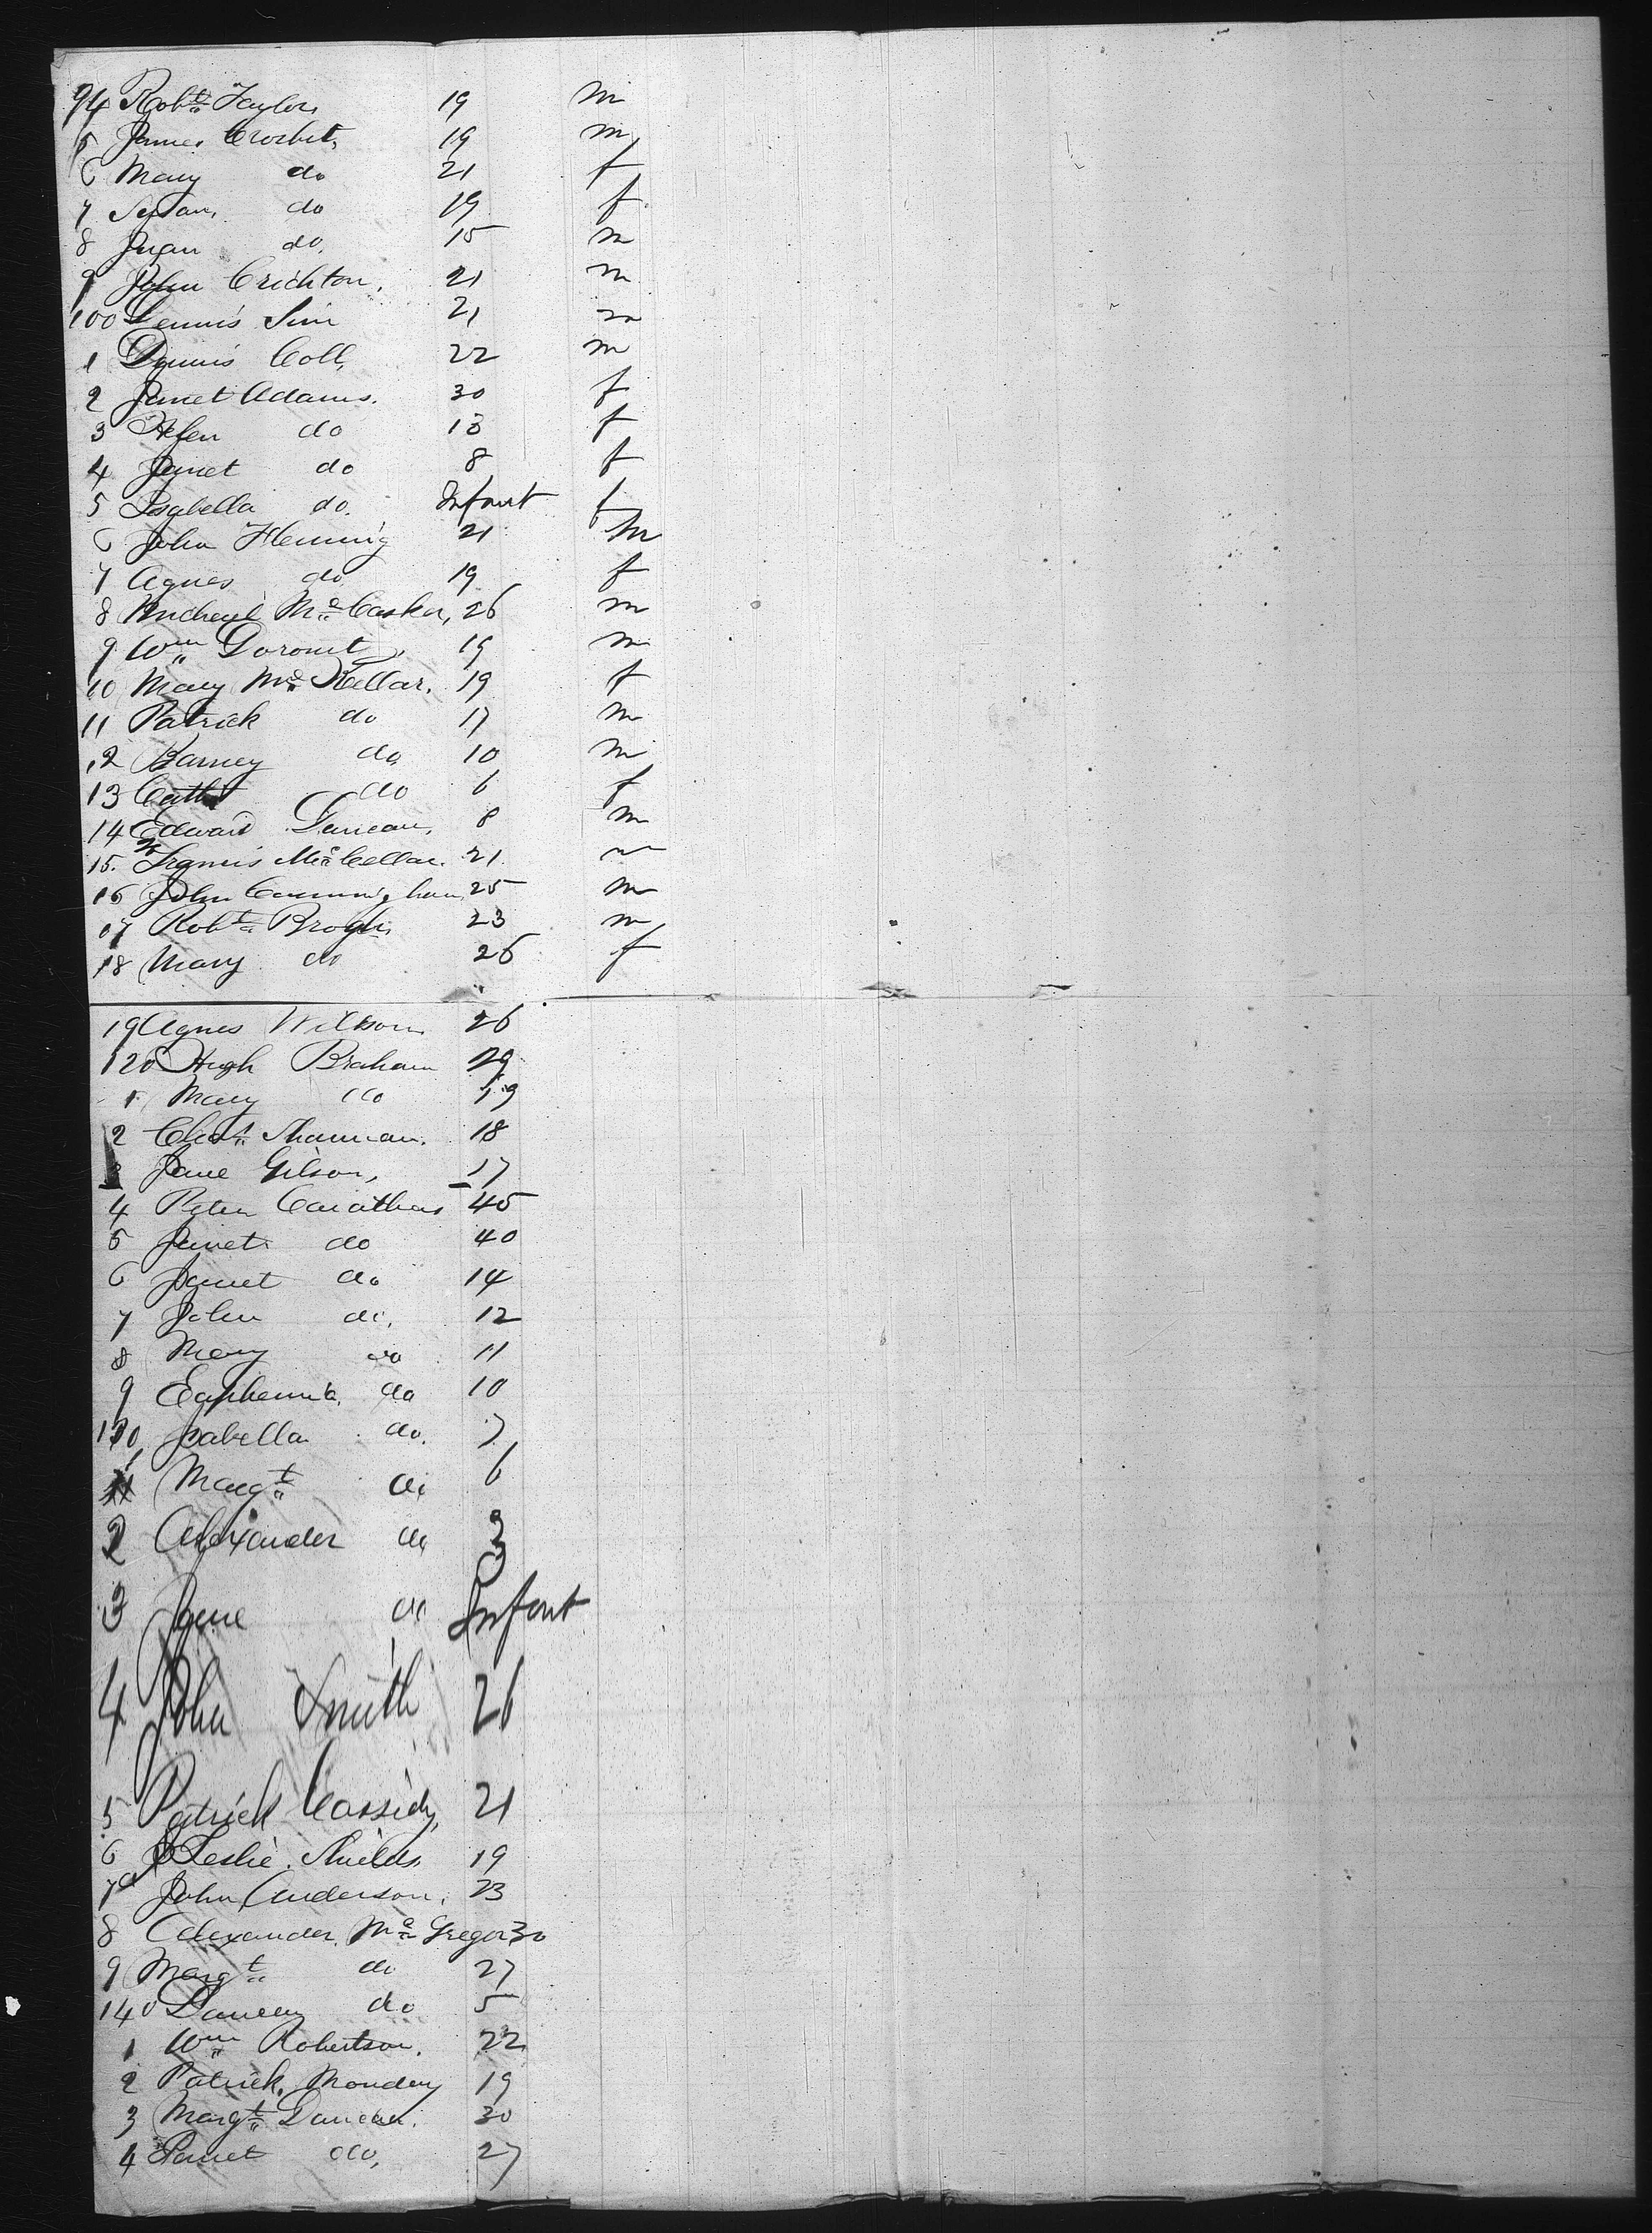 94 Robt Taylor 19 m
5 James Crosbet 19 m
6 Mary do 21 f
7 Susan do 19 f
8 do 15 m
9 John Crichton. 21 m
100 Dennis Sim 21 m
1 Dennis Coll, 22 m
2 Janet Adams. 30 f
3 Helen do 13 f
4 Janet do 8 f
5 Isabella do. Infant f
6 John Fleming 21 m
7 Agnes do 19 f
8 Micheal Mc Casker, 26 m
9 Wm 19 m
10 Mary Mc Kellar. 19 f
11 Patrick do 17 m
12 Barney do 10 m
13 Cath do 6 f
14 Edward Duncan. 8 m
15. Francis Mc Cellar. 21 m
16 John Cunningham 25 m
17 Robt Brogh 23 m
18 Mary do 26 f
19 Agnes Wilson 26
120 Hugh Braham 29
1 Mary do 19
2 Chast Shannan. 18
3 Jane Gilson, 17
4 Peter Carathers 45
5 Janet do 40
6 Janet do 14
7 John do. 12
8 Mary do 11
9 Euphemia do 10
130 Isabella do. 7
1 Margt do 6
2 Alexander do 3
3 Jane do Infant
4 John Smith 26
5 Patrick Cassidy, 21
6 Leslie Shields 19
7 John Anderson. 23
8 Alexander Mc Gregor 30
9 Margt do 27
140 Duncan do 5
1 Wm Robertson. 22
2 Patrick Monday 19
3 Margt Duncan. 30
4 Janet do, 27